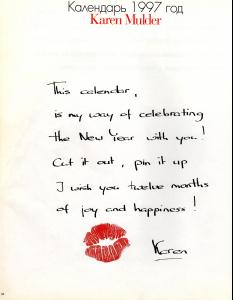 Календарь 1997 год
Karen Mulder
This calendar,
is my way of celebrating
the New Year with you!
Cut it out, pin it up
I wish you twelve months
of joy and happiness!
Karen